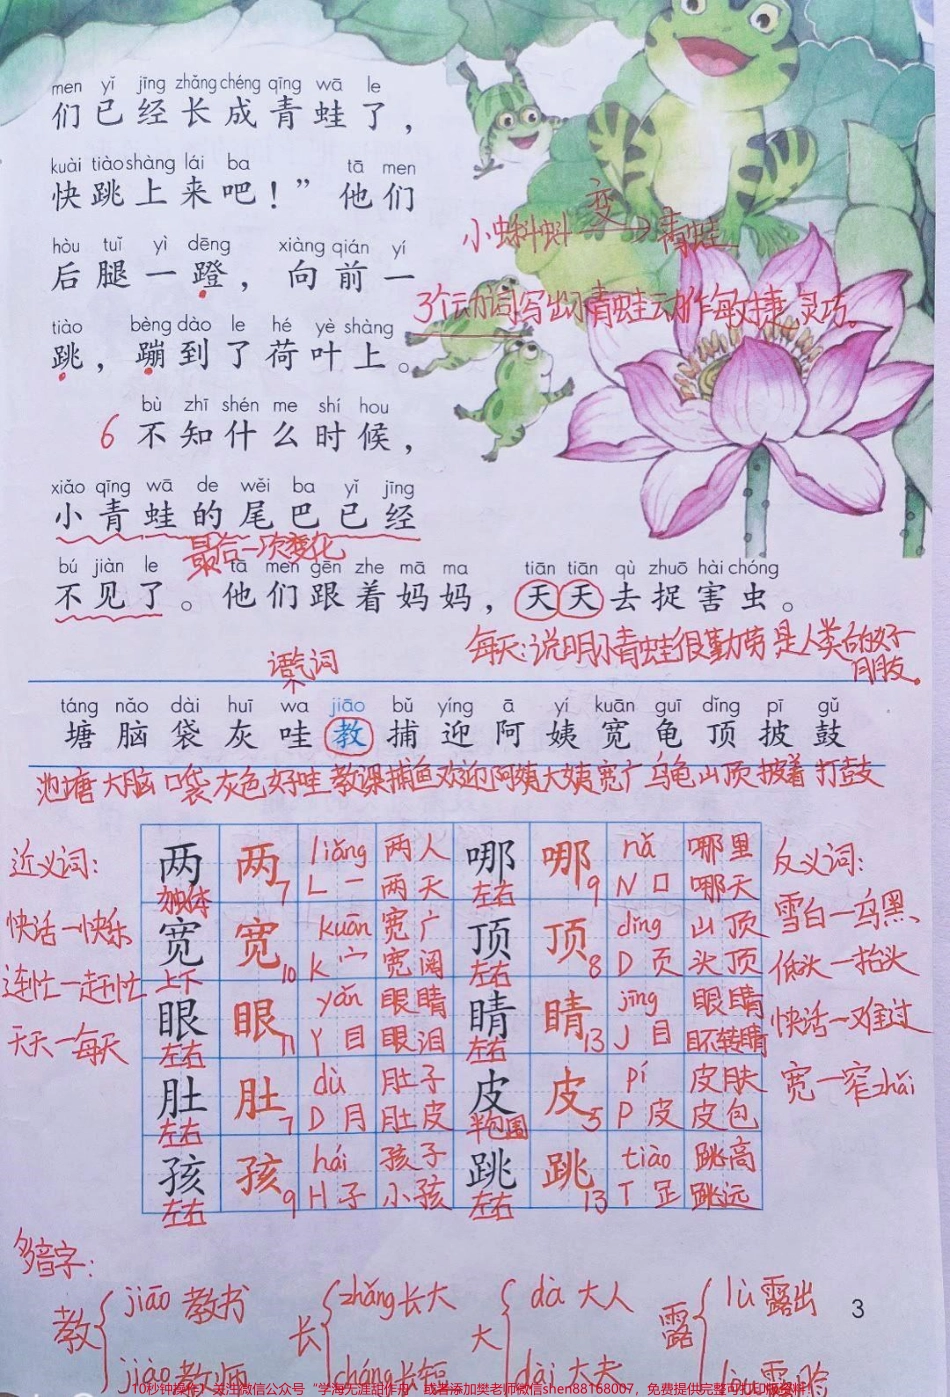 men yǐ jīng zhǎng chéng qīng wā le
们已经长成青蛙了，
kuài tiào shàng lái ba tā men
快跳上来吧！” 他们
hòu tuǐ yì dēng xiàng qián yí
后腿一蹬，向前一
tiào bèng dào le hé yè shàng
跳，蹦到了荷叶上。
小蝌蚪 变 → 青蛙
3个动词写出小青蛙动作敏捷、灵巧。
bù zhī shén me shí hou
6 不知什么时候，
xiǎo qīng wā de wěi ba yǐ jīng
小青蛙的尾巴已经
最后一次变化
bú jiàn le tā men gēn zhe mā ma tiān tiān qù zhuō hài chóng
不见了。他们跟着妈妈，天天去捉害虫。
每天：说明小青蛙很勤劳 是人类的好
朋友。
语气词
táng nǎo dài huī wa jiāo bǔ yíng ā yí kuān guī dǐng pī gǔ
塘脑袋灰哇教捕迎阿姨宽龟顶披鼓
池塘 大脑 口袋 灰色 好哇 教课 捕鱼 欢迎 阿姨 大姨 宽广 乌龟 山顶 披着 打鼓
近义词：
快活—快乐
连忙—赶忙
天天—每天
两 两 7 liǎng 两人 哪 哪 9 nǎ 哪里
独体 L 一 两天 左右 N 口 哪天
宽 宽 10 kuān 宽广 顶 顶 8 dǐng 山顶
上下 K 宀 宽阔 左右 D 页 头顶
眼 眼 11 yǎn 眼睛 睛 睛 13 jīng 眼睛
左右 Y 目 眼泪 左右 J 目 目不转睛
肚 肚 7 dù 肚子 皮 皮 5 pí 皮肤
左右 D 月 肚皮 半包围 P 皮 皮包
孩 孩 9 hái 孩子 跳 跳 13 tiào 跳高
左右 H 子 小孩 左右 T 足 跳远
反义词：
雪白—乌黑
低头—抬头
快活—难过
宽—窄zhǎi
多音字：
教 jiāo 教书 长 zhǎng 长大 大 dà 大人 露 lù 露出
jiào 教师 cháng 长短 dài 大夫
3
10秒钟操作：关注微信公众号“学海无涯甜作舟” 或者添加樊老师微信shen88168007，免费提供完整可打印版资料！